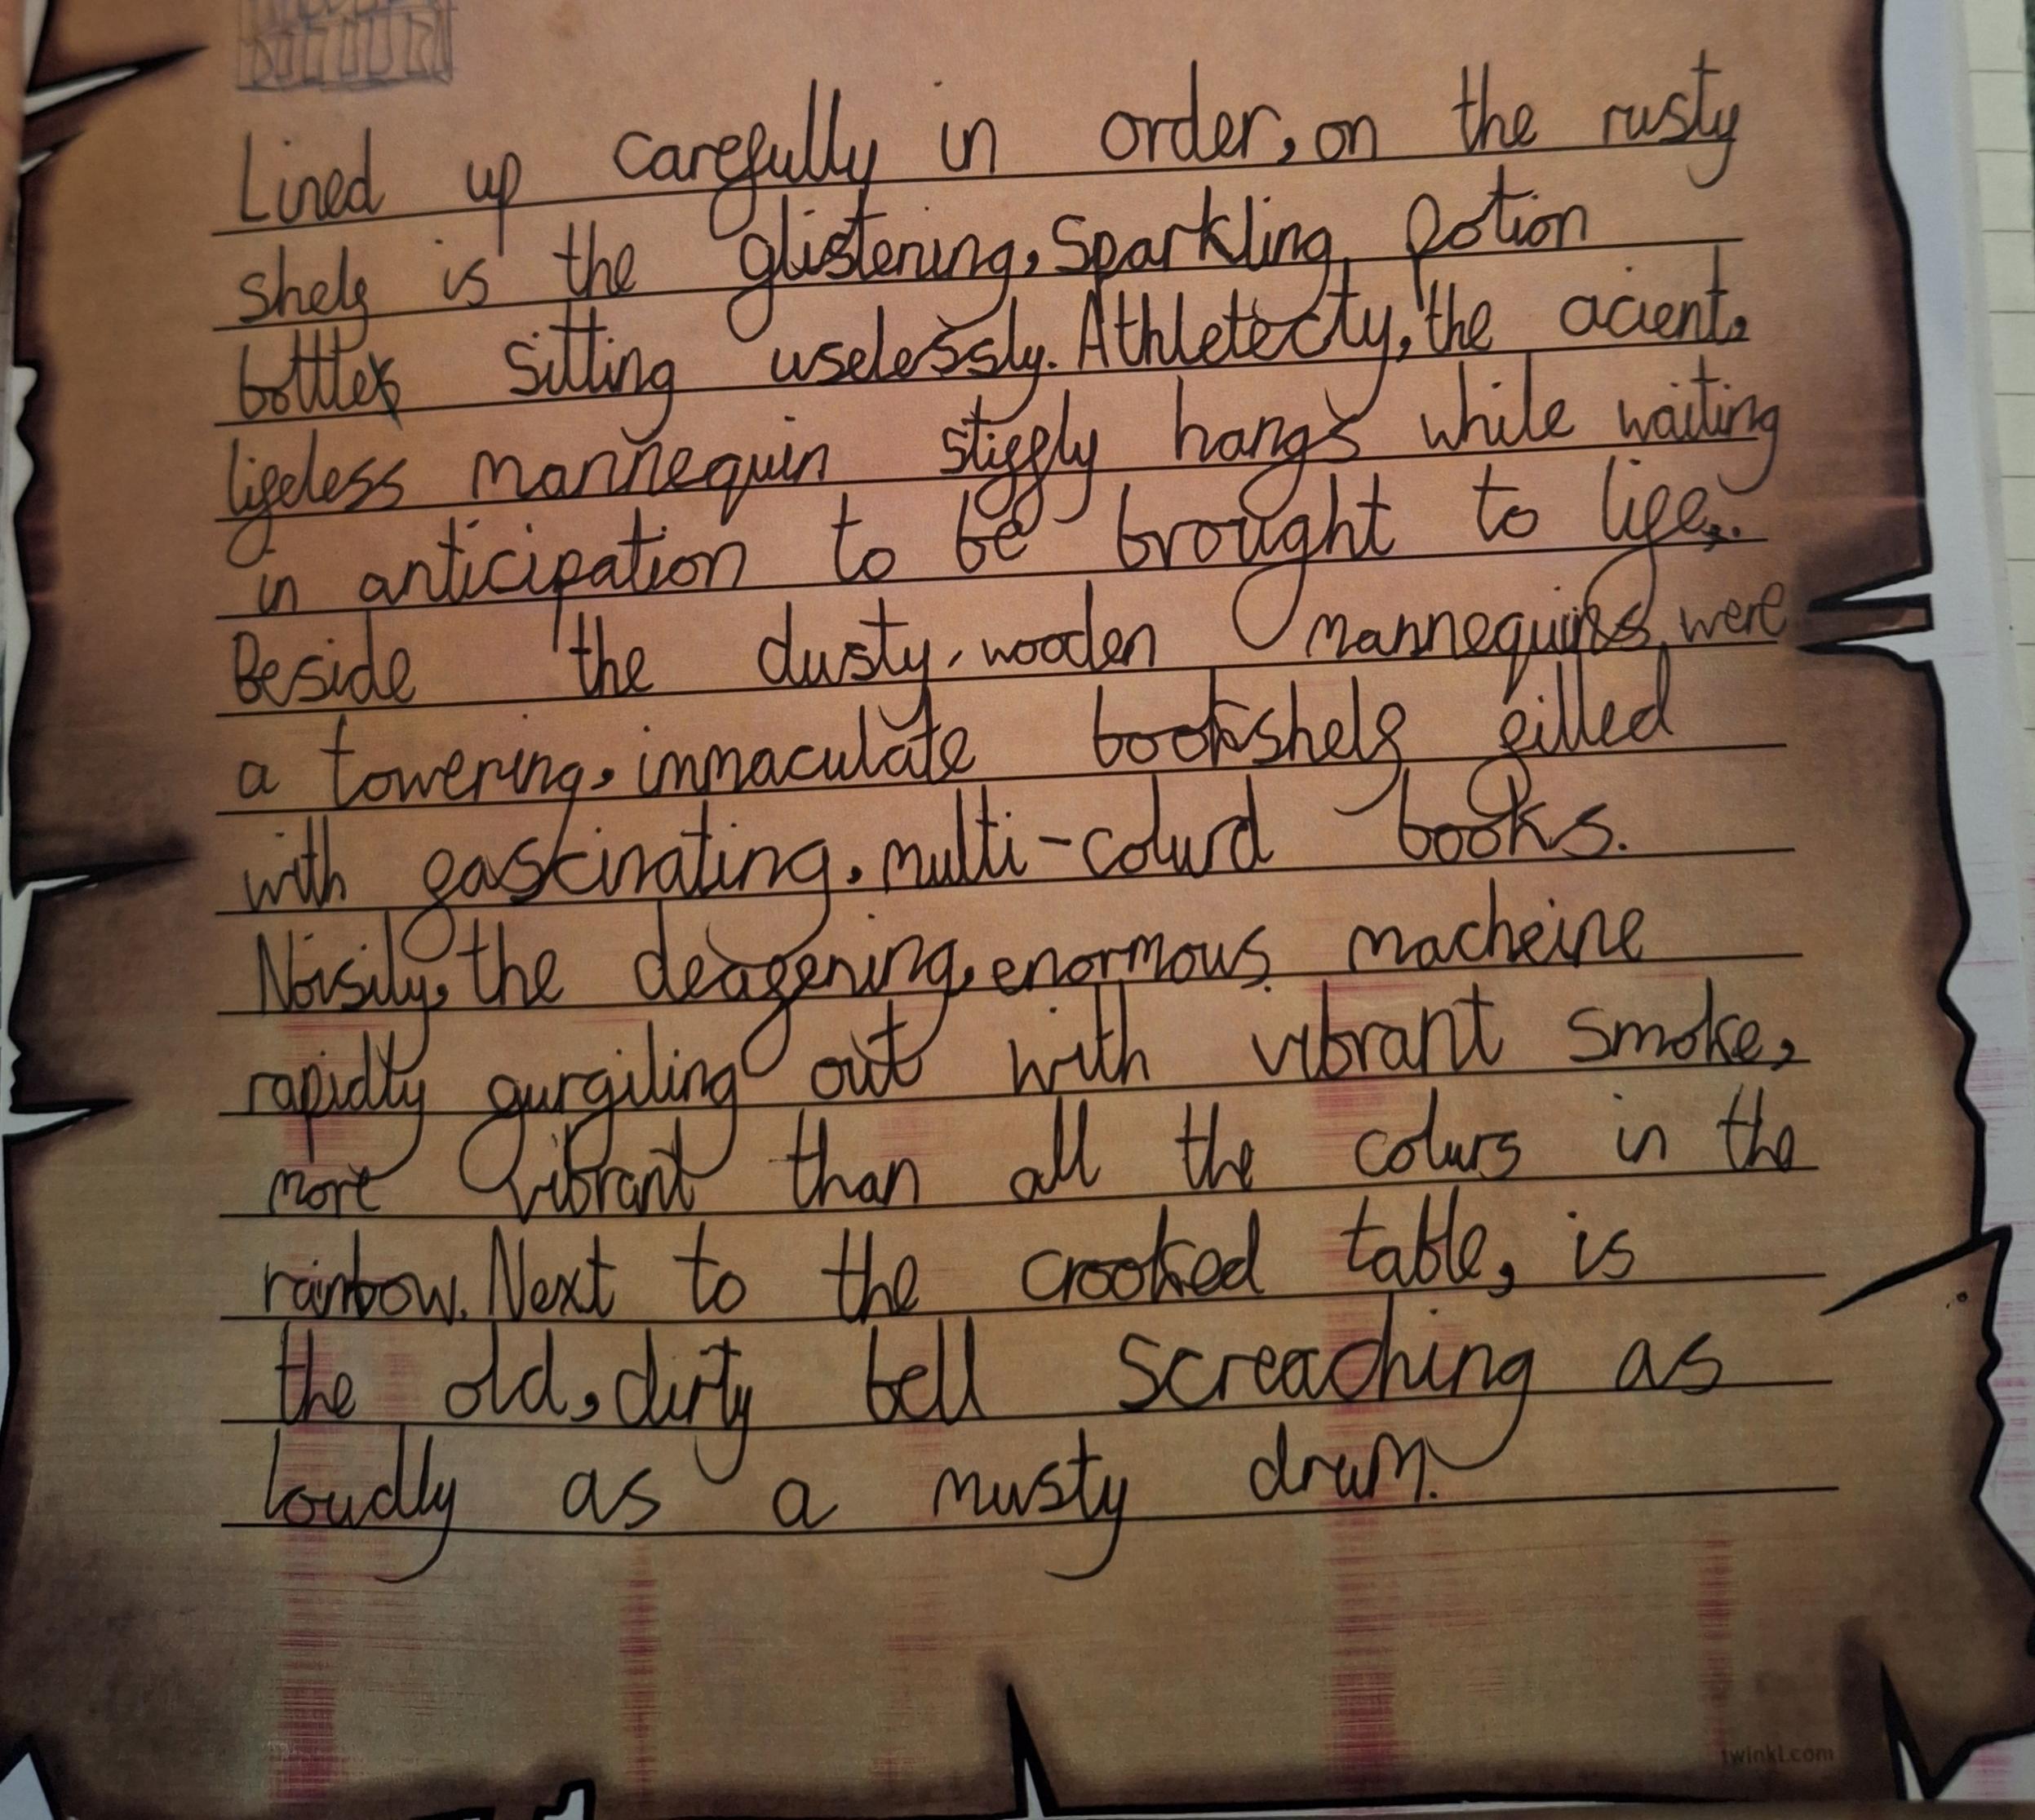 Lined up carefully in order, on the rusty
shelf is the glistening, Sparkling potion
bottle sitting uselessly. Athletecty, the acient,
lifeless mannequin stiffly hangs while waiting
in anticipation to be brought to life.
Beside the dusty, wooden mannequins, were
a towering, immaculate bookshelf filled
with fascinating, multi-colurd books.
Noisily, the deafening, enormous macheine
rapidly gurgiling out with vibrant smoke,
more vibrant than all the colurs in the
rainbow. Next to the crooked table, is
the old, dirty bell screaching as
loudly as a musty drum.
twinkl.com